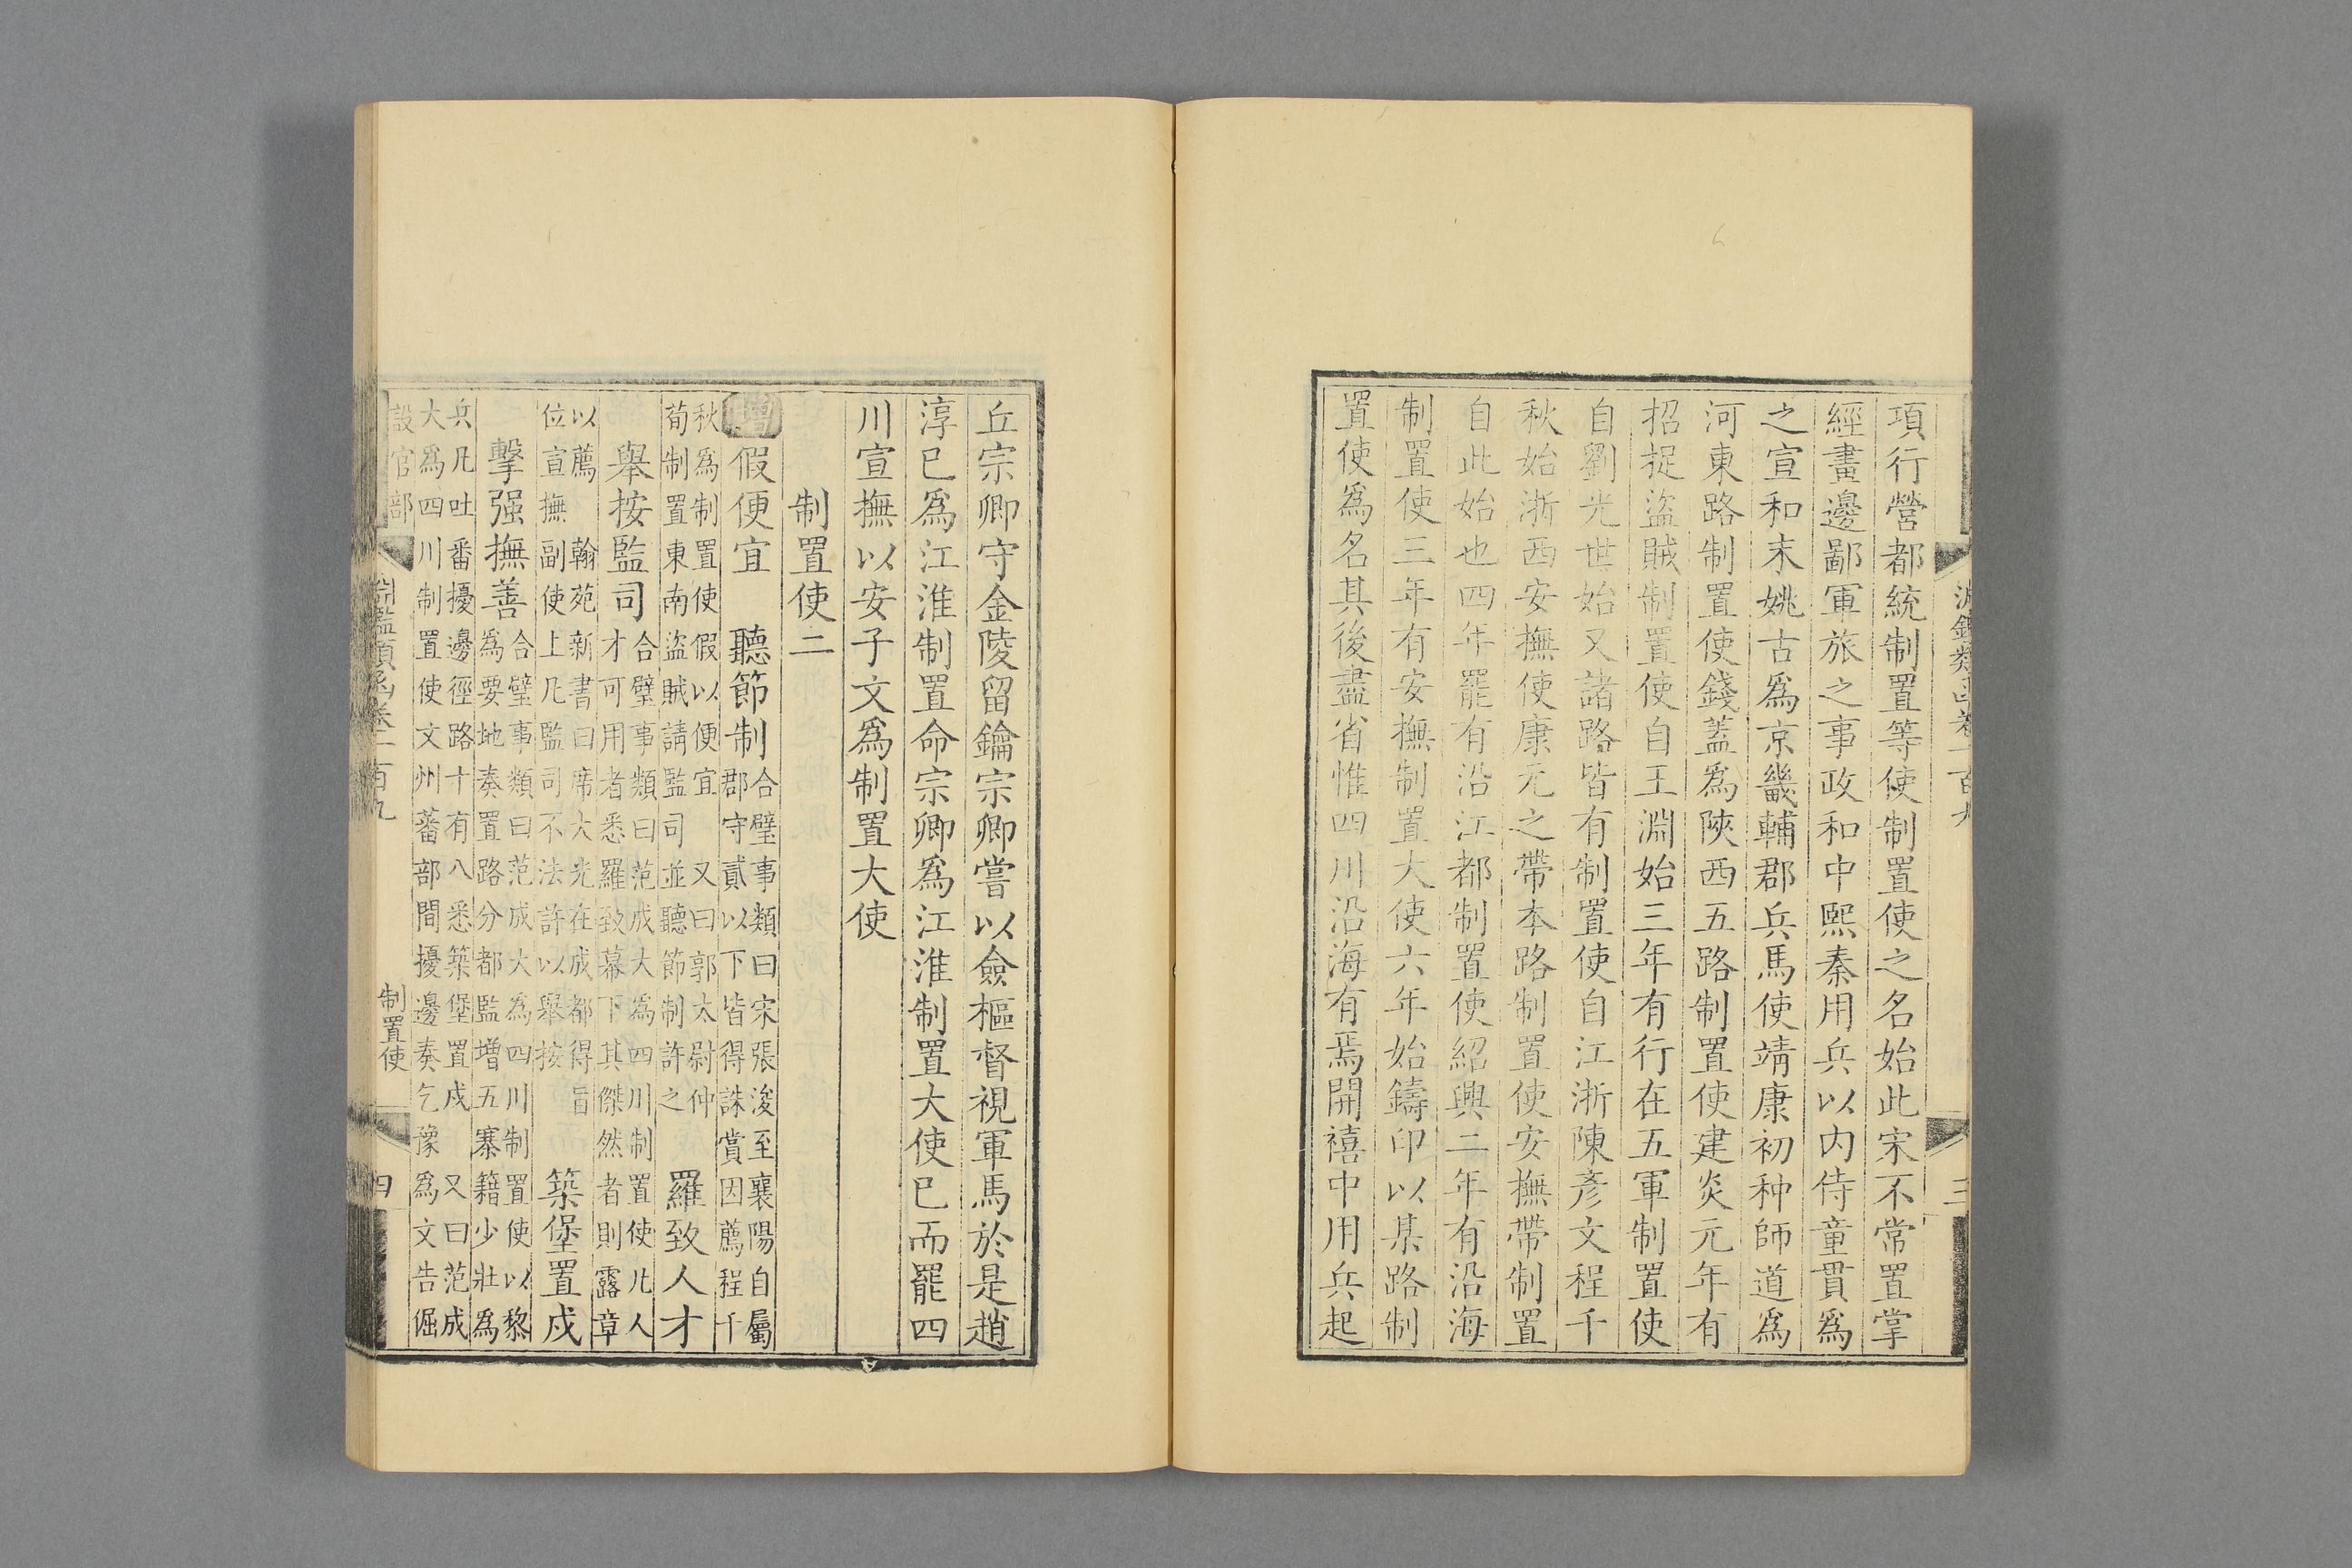 項行營都統制置等使制置使之名始此宋不常置掌
經畫邊鄙軍旅之事政和中熙秦用兵以内侍童貫爲
之宣和末姚古爲京畿輔郡兵馬使靖康初种師道爲
河東路制置使錢蓋爲陝西五路制置使建炎元年有
招捉盜賊制置使自王淵始三年有行在五軍制置使
自劉光世始又諸路皆有制置使自江浙陳彥文程千
秋始浙西安撫使康元之帶本路制置使安撫帶制置
自此始也四年罷有沿江都制置使紹興二年有沿海
制置使三年有安撫制置大使六年始鑄印以某路制
置使爲名其後盡省惟四川沿海有焉開禧中用兵起
丘宗卿守金陵留鑰宗卿嘗以僉樞督視軍馬於是趙
淳巳爲江淮制置命宗卿爲江淮制置大使巳而罷四
川宣撫以安子文爲制置大使
制置使二
增 假便宜 聽節制 合璧事類曰宋張浚至襄陽自屬
郡守貳以下皆得誅賞因薦程千
秋爲制置使假以便宜 又曰郭大尉仲
荀制置東南盜賊請監司並聽節制許之 羅致人才
舉按監司 合璧事類曰范成大爲四川制置使凡人
才可用者悉羅致幕下其傑然者則露章
以薦 翰苑新書曰席大光在成都得旨
位宣撫副使上凡監司不法許以舉按 築堡置戍
擊强撫善 合璧事類曰范成大爲四川制置使以黎
爲要地奏置路分都監增五寨籍少壯爲
兵凡吐番擾邊徑路十有八悉築堡置戍 又曰范成
大爲四川制置使文州蕃部間擾邊奏乞豫爲文告倔
設官部
淵鑑類函卷一百九
制置使
四
淵鑑類函卷一百九
三